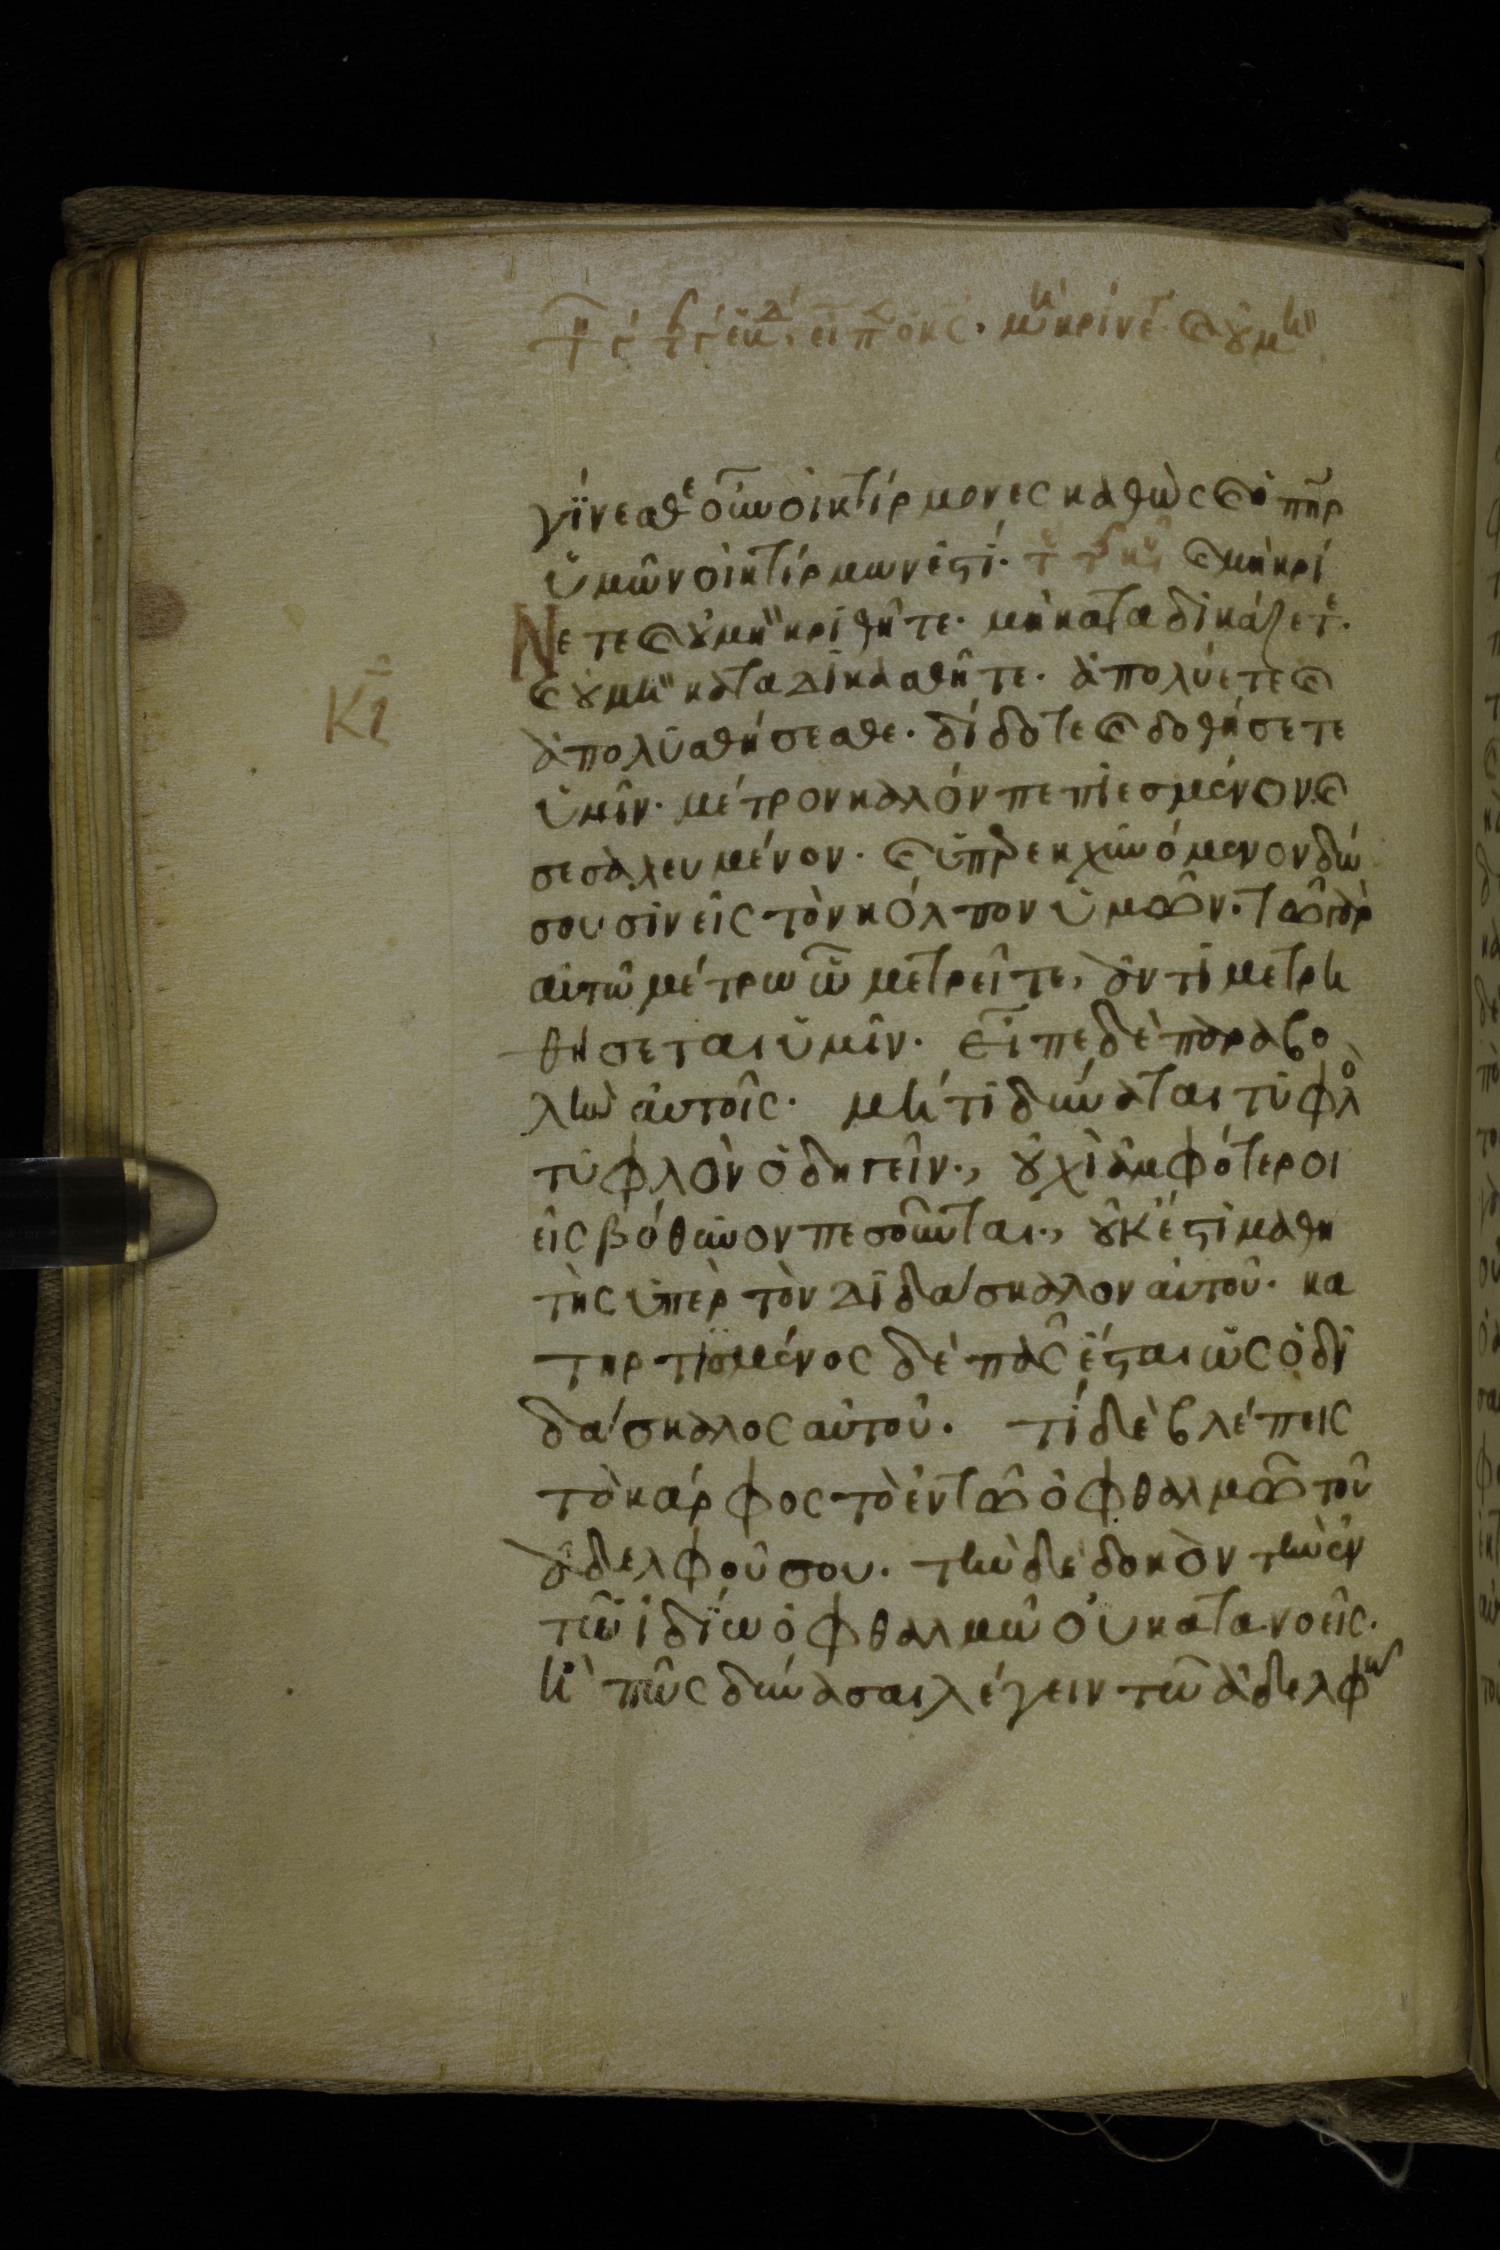 μὴ κρίνετ ϗ ȣ μὴ
γίνεσθε οὖν οἰκτίρμονες καθὼς ϗ ὁ πηρ
ὑμῶν οἰκτίρμων ἐστί. ϗ μὴ κρί
Νετε ϗ ȣ μὴ κριθῆτε. μὴ καταδικάζετε.
ϗ ȣ μὴ καταδικασθῆτε. ἀπολύετε ϗ
κζ
ἀπολυθήσεσθε. δίδοτε ϗ δοθήσετε
ὑμῖν. μέτρον καλόν πεπιεσμένον ϗ
σεσαλευμένον. ϗ ὑπερεκχυνόμενον δώ
σουσιν εἰς τὸν κόλπον ὑμῶν. τῶ γὰρ
αὐτῶ μέτρω ὧ μετρεῖτε, ἀντιμετρη
θήσεται ὑμῖν. Εἶπε δὲ παραβο
λὴν αὐτοῖς. μήτι δύναται τυφλὸ
τυφλὸν ὁδηγεῖν., ȣχὶ ἀμφότεροι
εἰς βόθυνον πεσοῦνται., ȣκ ἔστι μαθη
τὴς ὑπὲρ τὸν διδάσκαλον αὐτοῦ. κα
τηρτισμένος δὲ πᾶς ἔσται ὡς ὁ δι
δάσκαλος αὐτοῦ. τί δὲ βλέπεις
τὸ κάρφος τὸ ἐν τῶ ὀφθαλμῶ τοῦ
ἀδελφοῦ σου. τὴν δὲ δοκὸν τὴν ἐν
τῶ ἰδίω ὀφθαλμῶ οὐ κατανοεῖς.
ἢ πῶς δύνασαι λέγειν τῶ ἀδελφῶ